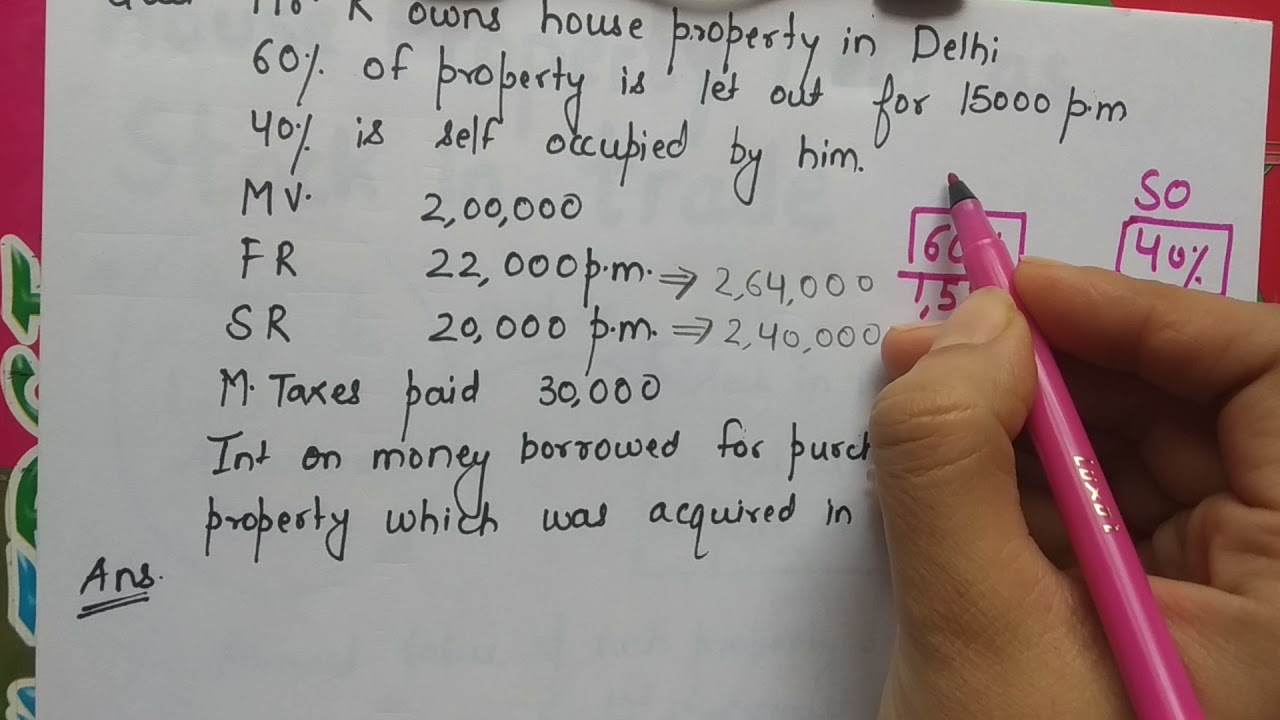 K owns house property in Delhi
60% of property is let out for 15000 p.m
40% is self occupied by him.
M V. 2,00,000
F R 22,000 p.m. ⇒ 2,64,000
S R 20,000 p.m. ⇒ 2,40,000
M. Taxes paid 30,000
Int on money borrowed for
property which was acquired in
Ans.
SO
40%
LUXOR